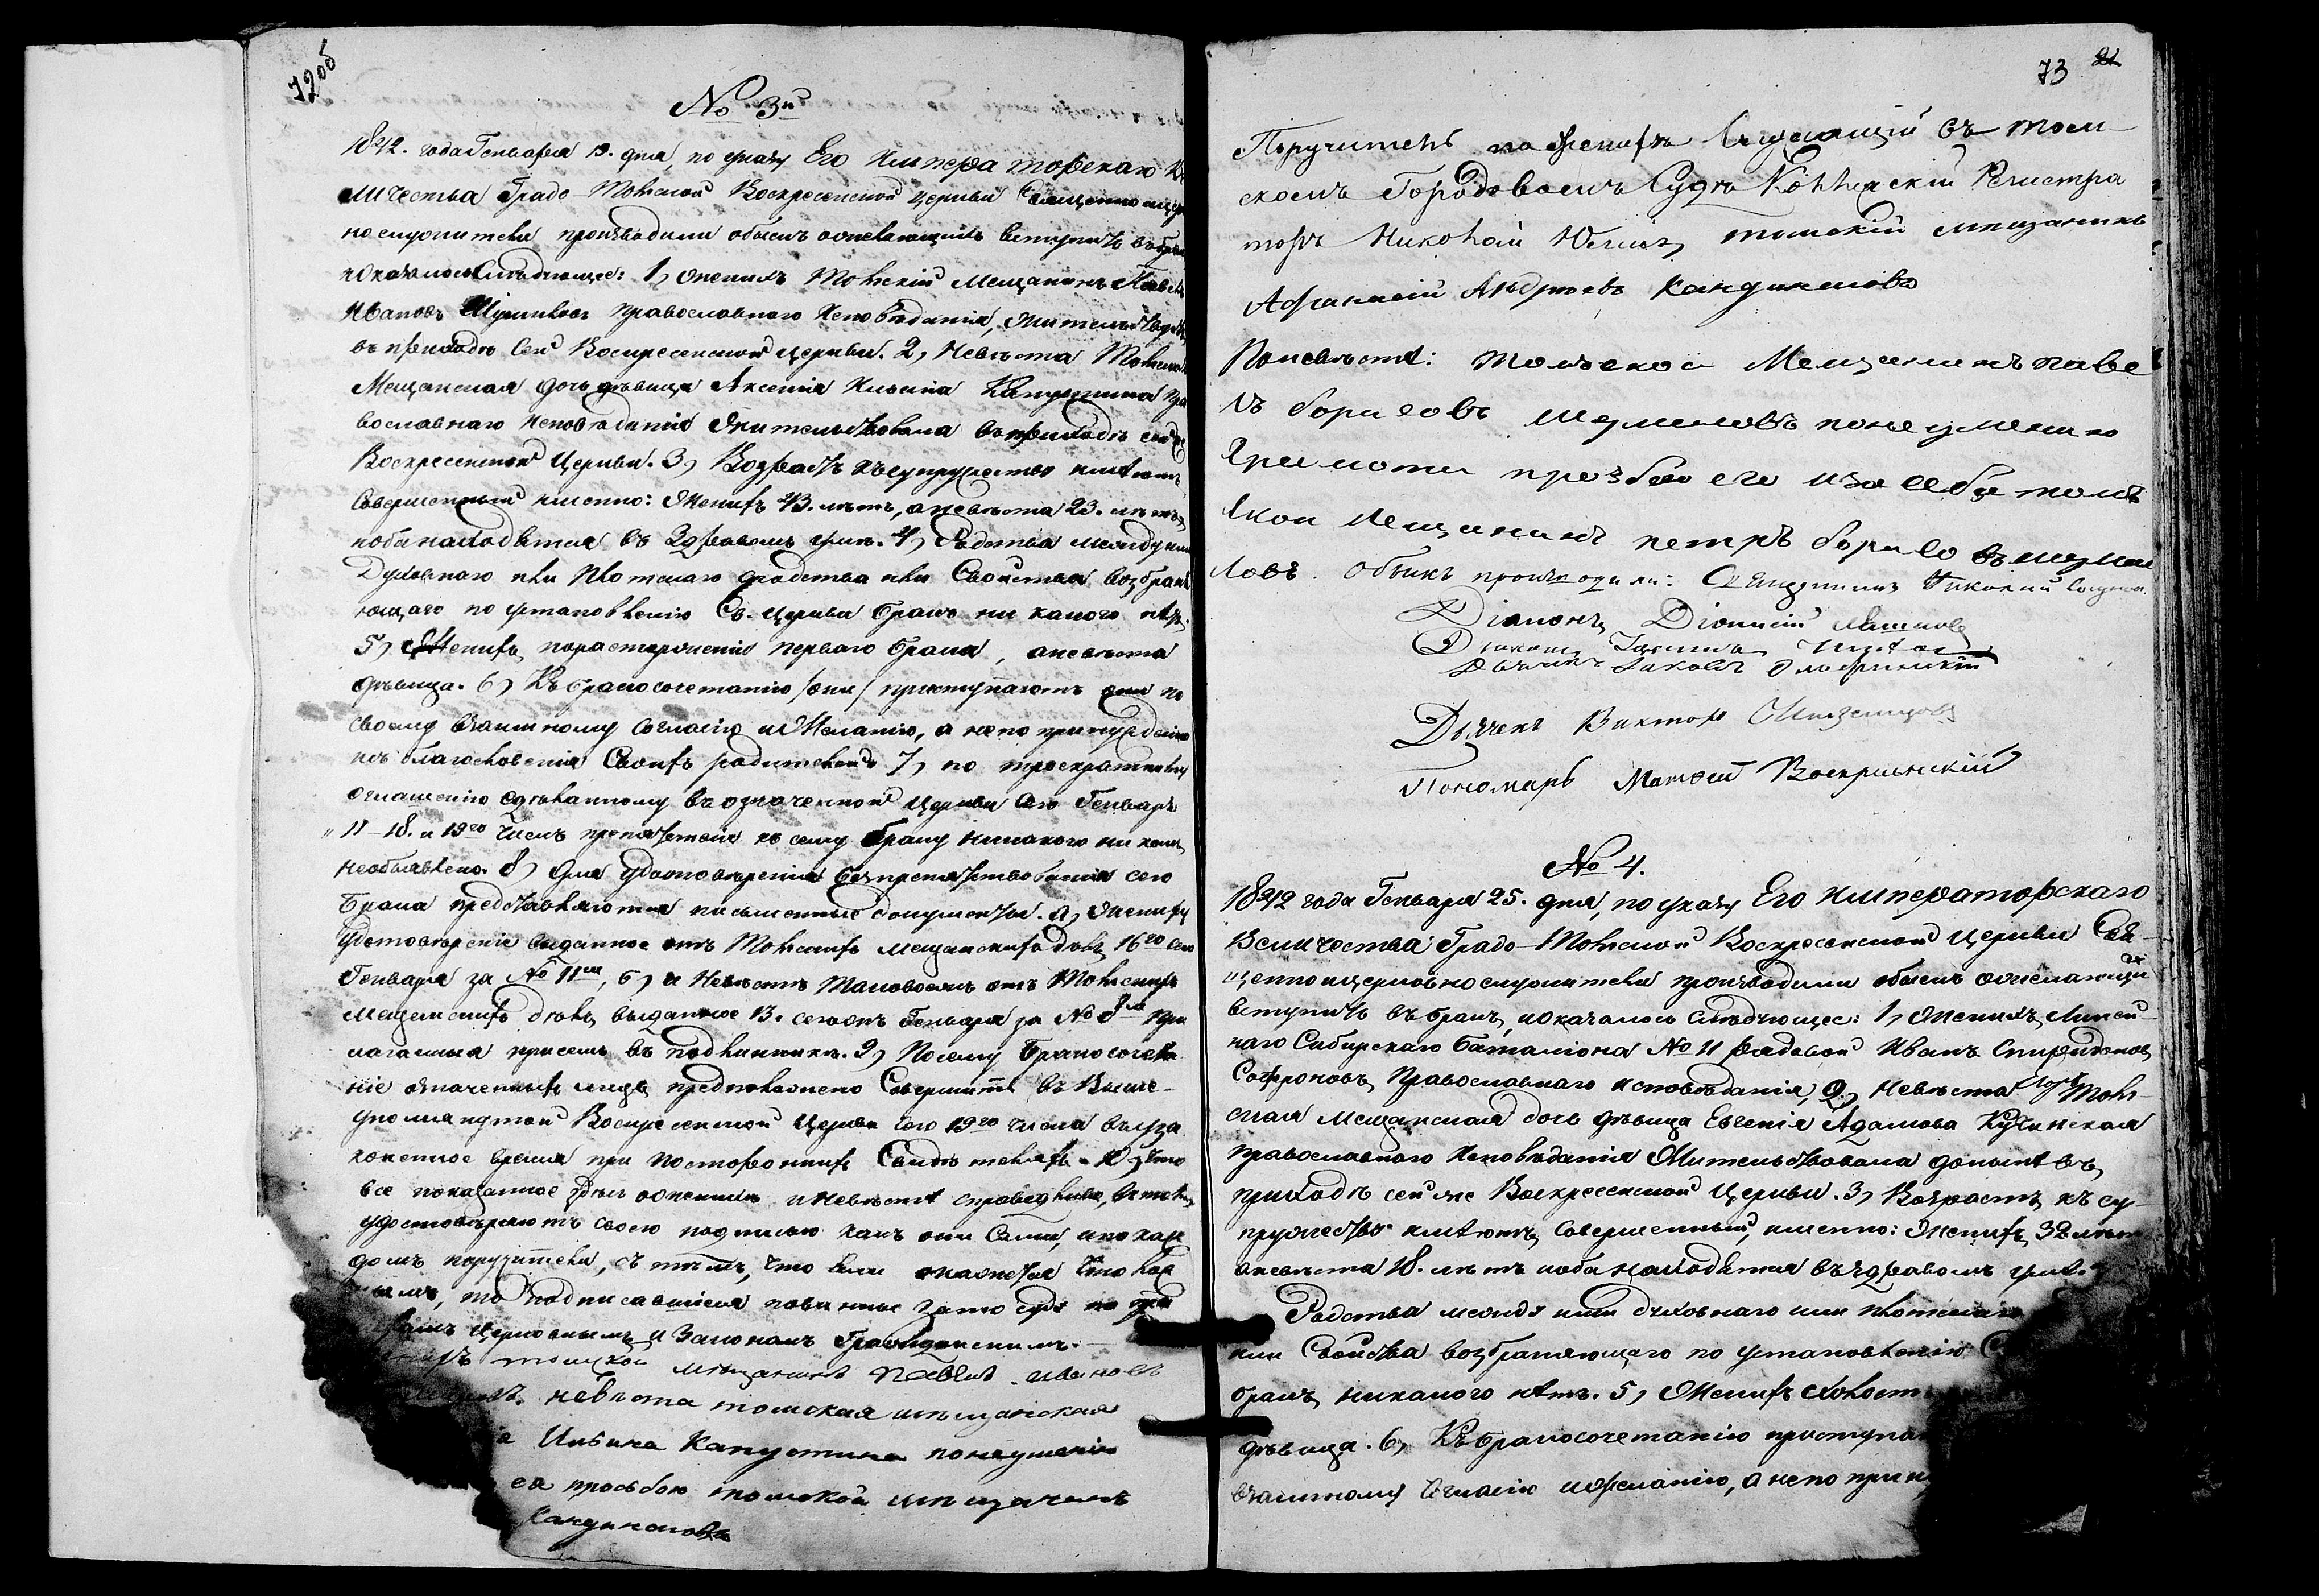 72об
№ 3й
1842. года Генваря 19. дня, по указу Его Императорскаго Ве
личества Градо-Томской Воскресенской церкви Священноцерков
нослужители производили обыскъ о желающихъ вступить въ бракъ
и оказалось слѣдующее: 1, Женихъ Томскій Мещанинъ Павелъ
Ивановъ Православнаго Исповѣданія, жительствуетъ
въ приходѣ сей Воскресенской церкви. 2, Невѣста Томская
Мещанская дочь дѣвица Аксенія Ильина Капустина Пра
вославнаго Исповѣданія жительствовала въ приходѣ сей же
Воскресенской Церкви. 3, Возрастъ къ супружеству имѣютъ
совершенный именно: Женихъ 43. лѣтъ, а невѣста 23. лѣтъ,
и оба находятся въ здравомъ умѣ. 4, Родства между ими
Духовнаго или Плотскаго родства или Свойства возбраня
ющаго по установленію Св. Церкви бракъ ни какого нѣтъ.
5, Женихъ, по расторженіи перваго брака, а невѣста
дѣвица. 6, Къ бракосочетанію приступаютъ они по
своему взаимному согласію и желанію, а не по принужденію
и съ благословенія Своихъ родителей. 7, по троекратному
оглашенію сдѣланному въ означенной Церкви сего Генваря
11-18. и 19го числъ препятствія къ сему браку никакого ни кемъ
необъявлено. 8, Для удостовѣренія безпрепятствованія сего
Брака представляются письменные документы. а, Жениху
удостовѣреніе выданное отъ Томскихъ мещанскихъ дѣлъ, 16го сего
Генваря за № 11мъ, б, а Невѣстѣ таковоежъ отъ Томскихъ
мещанскихъ дѣлъ, выданное 13. сего Генваря за № 8мъ при
лагаемыя присемъ въ подлинникѣ. 9, Посему бракосочета
ніе означенныхъ лицъ предположено Совершить въ Выше-
упомянутой Воскресенской Церкви сего 19го числа въ уза
коненное время при постороннихъ Свидѣтеляхъ. 10, Что
все показанное здѣсь о женихѣ и невѣстѣ справедливо, въ томъ
удостовѣряютъ своею подписью какъ они Сами, и по каж
домъ поручители, съ тѣмъ, что если окажется что лож
нымъ, то подписавшіеся повинные за то суду по пра
виламъ Церковнымъ и Законамъ Гражданскимъ.
томской мещанинъ Павелъ ивановъ
невѣста томская мещанская
Ильина Капустина понеумению
ея просьбою томской мещанинъ
Кандинсковъ
73 21
Поручители по женихѣ Служащій въ Томс
скомъ Городовомъ Судѣ Коллежскій Регистра
торъ Николай томскій мещанинъ
Афанасій Андреевъ Кандинсковъ
По невѣстѣ: томъской Мещенинъ паве
лъ борисовъ шумиловъ понеумению
Грамоти прозбою его иза себя томъ
ской мещанинъ петръ борисовъ шуми
ловъ. Обыскъ производили: Священникъ Николай
Діаконъ Діонисій
Діаконъ
Дьячекъ Іаковъ
Дьячекъ Викторъ
Пономарь Матѳей Воскресенскій
№ 4.
1842 года Генваря 25. дня, по указу Его Императорскаго
Величества Градо-Томской Воскресенской Церкви Свя-
щенноцерковнослужители производили обыскъ о желающихъ
вступить въ бракъ, и оказалось слѣдующее: 1, Женихъ, Линей-
наго Сибирскаго баталіона № 11 рядовой Иванъ Спиридоновъ
Софроновъ, Православнаго исповѣданія, 2, Невѣста Томс-
ская мещанская дочь дѣвица Евгенія Адамова Кучинская
Православнаго Исповѣданія Жительствовала донынѣ въ
приходѣ сей же Воскресенской Церкви. 3, Возрастъ, къ су-
пружеству имѣютъ, совершенный, именно: Женихъ, 32 лѣтъ
а невѣста 18. лѣтъ и оба находятся въ здравомъ умѣ.
Родства между ими духовнаго или плотскаго
или Свойства возбраняющаго по установленію С
бракъ, никакого нѣтъ. 5, Женихъ холостъ
дѣвица. 6, Къ бракосочетанію приступаю
взаимному согласію и желанію, а не по прин